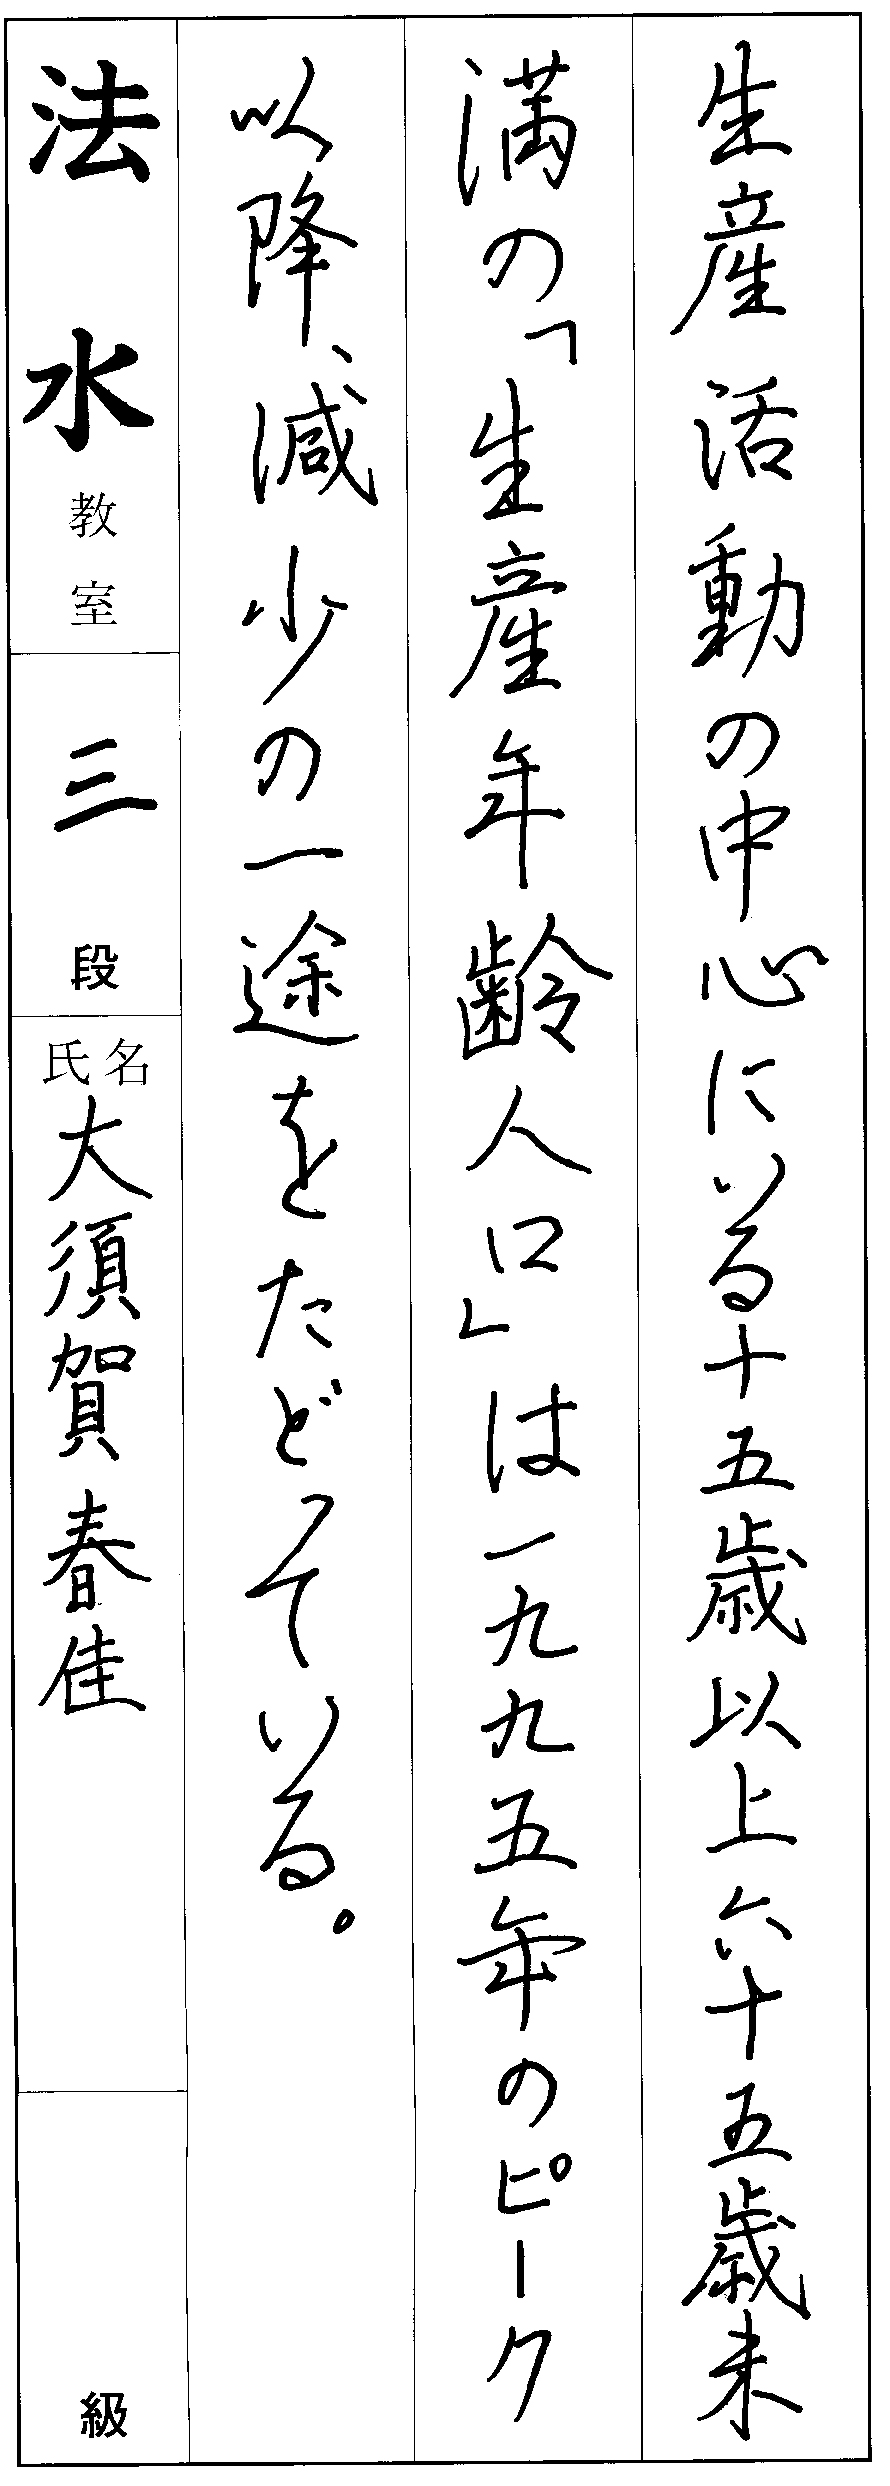 生産活動の中心にいる十五歳以上六十五歳未
満の「生産年齢人口」は一九九五年のピーク
以降、減少の一途をたどっている。
法水教室
三段
氏名
大須賀春佳
級